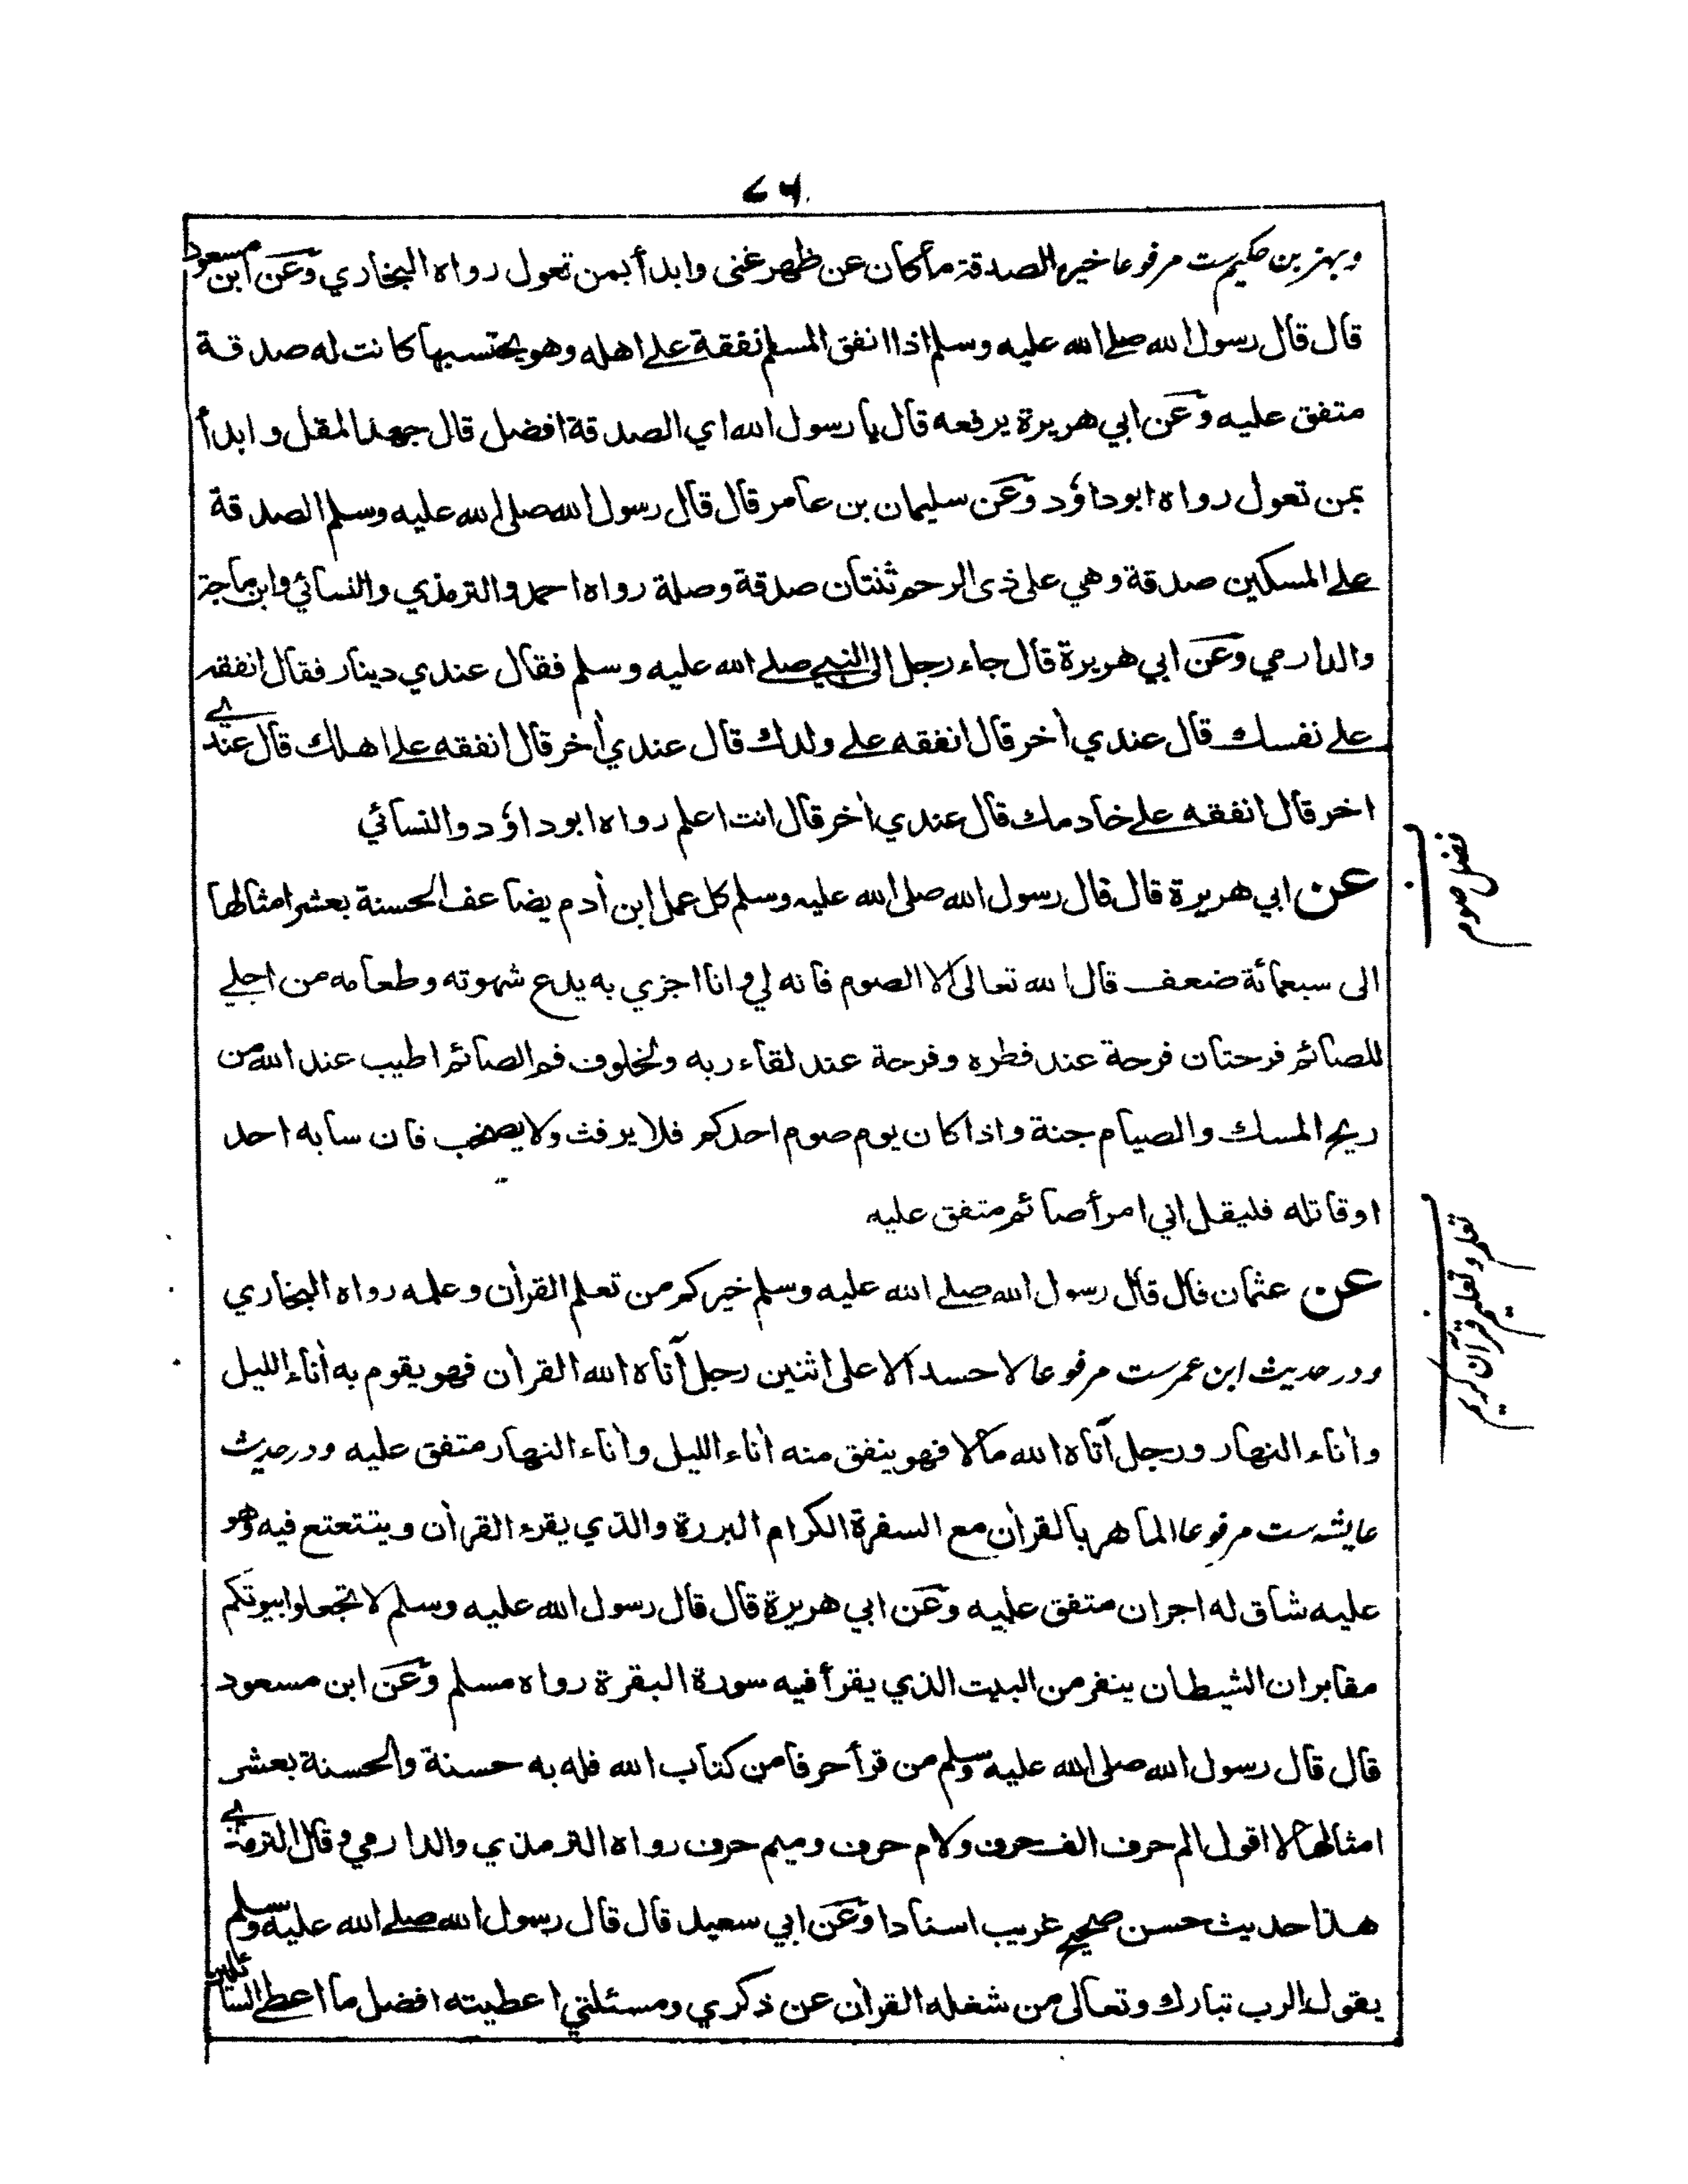 ۶۷
وبهز بن حکیم ست مرفوعا خير الصدقة ما كان عن ظهر غنى وابدأ بمن تعول رواه البخاري وعن ابن مسعود
قال قال رسول الله صلے الله عليه وسلم اذا انفق المسلم نفقة علے اهله وهو يحتسبها كانت له صدقة
متفق عليه وعن ابي هريرة يرفعه قال يا رسول الله اي الصدقة افضل قال جهد المقل و ابدأ
بمن تعول رواه ابوداؤد وعن سليمان بن عامر قال قال رسول الله صلى الله عليه وسلم الصدقة
علے المسكين صدقة وهي على ذى الرحم ثنتان صدقة وصلة رواه احمد والترمذي والنسائي وابن ماجة
والدارمي وعن ابي هريرة قال جاء رجل الى النبي صلے الله عليه وسلم فقال عندي دينار فقال انفقه
علے نفسك قال عندي أخر قال انفقه علے ولدك قال عندي أخر قال انفقه علے اهلك قال عندي
اخر قال انفقه علے خادمك قال عندي أخر قال انت اعلم رواه ابوداؤد والنسائي
فضل صوم
عن ابي هريرة قال قال رسول الله صلى الله عليه وسلم كل عمل ابن أدم يضاعف الحسنة بعشر امثالها
الى سبعمائة ضعف قال الله تعالى الا الصوم فانه لي وانا اجزي به يدع شهوته وطعامه من اجلي
للصائم فرحتان فرحة عند فطره وفرحة عند لقاء ربه ولخلوف فم الصائم اطيب عند الله من
ريح المسك والصيام جنة واذا كان يوم صوم احدكم فلا يرفث ولا يصخب فان سابه احد
اوقاتله فليقل اني امرأ صائم متفق عليه
تعلم و تعلیم قرآن کریم
عن عثمان قال قال رسول الله صلے الله عليه وسلم خيركم من تعلم القرأن وعلمه رواه البخاري
ودر حدیث ابن عمر ست مرفوعا لا حسد الا على اثنين رجل أتاه الله القرأن فهو يقوم به أناء الليل
وأناء النهار ورجل أتاه الله مالا فهو ينفق منه أناء الليل وأناء النهار متفق عليه ودر حدیث
عایشه ست مرفوعا الماهر بالقرأن مع السفرة الكرام البررة والذي يقرء القرأن ويتتعتع فيه وهو
عليه شاق له اجران متفق عليه وعن ابي هريرة قال قال رسول الله عليه وسلم لا تجعلوا بيوتكم
مقابر ان الشيطان ينفر من البيت الذي يقرأ فيه سورة البقرة رواه مسلم وعن ابن مسعود
قال قال رسول الله صلى الله عليه وسلم من قرأ حرفا من كتاب الله فله به حسنة والحسنة بعشر
امثالها لا اقول الم حرف الف حرف ولام حرف وميم حرف رواه الترمذي والدارمي وقال الترمذي
هذا حديث حسن صحيح غريب اسنادا وعن ابي سعيد قال قال رسول الله صلے الله عليه وسلم
يقول الرب تبارك وتعالى من شغله القرأن عن ذكري ومسئلتي اعطيته افضل ما اعطي السائلين